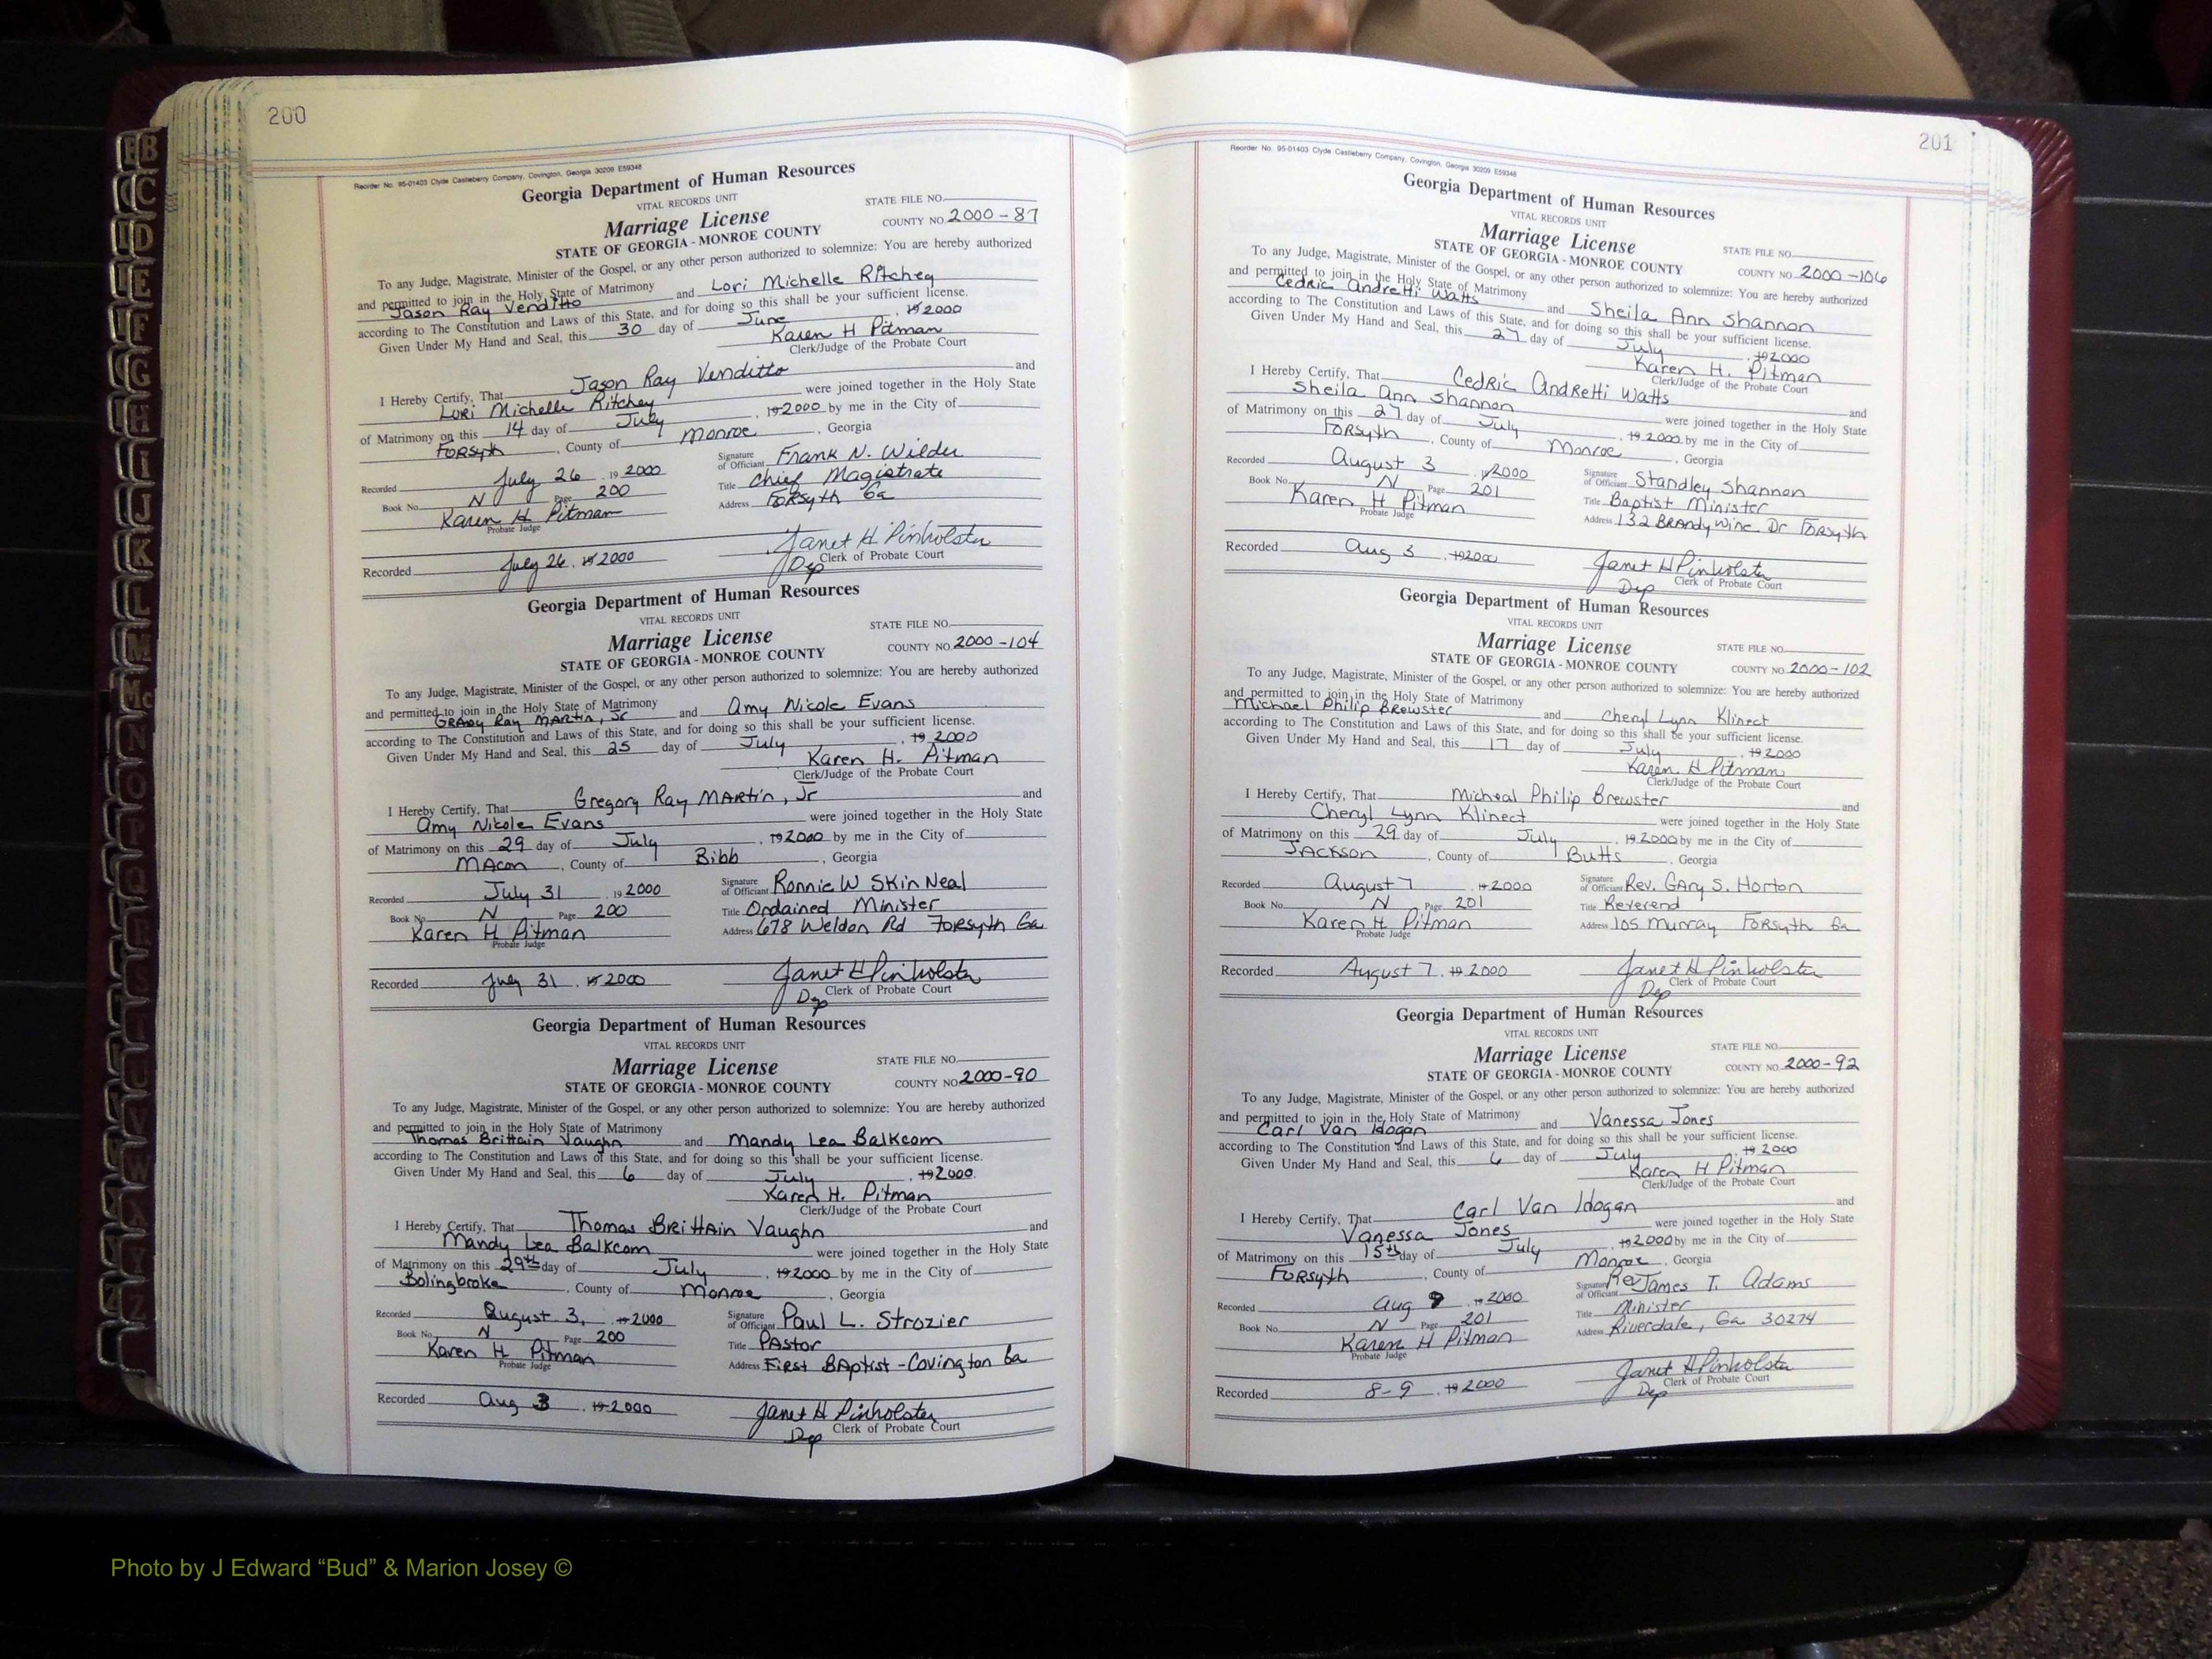 200
Reorder No. 95-01403 Clyde Castleberry Company, Covington, Georgia 30209 E59348
Georgia Department of Human Resources
VITAL RECORDS UNIT
STATE FILE NO.
Marriage License
COUNTY NO. 2000-87
STATE OF GEORGIA - MONROE COUNTY
To any Judge, Magistrate, Minister of the Gospel, or any other person authorized to solemnize: You are hereby authorized
and permitted to join in the Holy State of Matrimony
Jason Ray Venditto and Lori Michelle Ritchey
according to The Constitution and Laws of this State, and for doing so this shall be your sufficient license.
Given Under My Hand and Seal, this 30 day of June, 19 2000
Karen H Pitman
Clerk/Judge of the Probate Court
I Hereby Certify, That Jason Ray Venditto and
Lori Michelle Ritchey were joined together in the Holy State
of Matrimony on this 14 day of July, 19 2000 by me in the City of
Forsyth, County of Monroe, Georgia
Recorded July 26, 19 2000 Signature of Officiant Frank N. Wilder
Book No. N Page 200 Title Chief Magistrate
Karen H Pitman Address Forsyth Ga
Probate Judge
Recorded July 26, 19 2000 Janet H Pinholster
Dep Clerk of Probate Court
Georgia Department of Human Resources
VITAL RECORDS UNIT
STATE FILE NO.
Marriage License
COUNTY NO. 2000-104
STATE OF GEORGIA - MONROE COUNTY
To any Judge, Magistrate, Minister of the Gospel, or any other person authorized to solemnize: You are hereby authorized
and permitted to join in the Holy State of Matrimony
Grady Ray Martin, Jr and Amy Nicole Evans
according to The Constitution and Laws of this State, and for doing so this shall be your sufficient license.
Given Under My Hand and Seal, this 25 day of July, 19 2000
Karen H. Pitman
Clerk/Judge of the Probate Court
I Hereby Certify, That Gregory Ray Martin, Jr and
Amy Nicole Evans were joined together in the Holy State
of Matrimony on this 29 day of July, 19 2000 by me in the City of
Macon, County of Bibb, Georgia
Recorded July 31, 19 2000 Signature of Officiant Ronnie W Skin Neal
Book No. N Page 200 Title Ordained Minister
Karen H Pitman Address 678 Weldon Rd Forsyth Ga
Probate Judge
Recorded July 31, 19 2000 Janet H Pinholster
Dep Clerk of Probate Court
Georgia Department of Human Resources
VITAL RECORDS UNIT
STATE FILE NO.
Marriage License
COUNTY NO. 2000-90
STATE OF GEORGIA - MONROE COUNTY
To any Judge, Magistrate, Minister of the Gospel, or any other person authorized to solemnize: You are hereby authorized
and permitted to join in the Holy State of Matrimony
Thomas Brittain Vaughn and Mandy Lea Balkcom
according to The Constitution and Laws of this State, and for doing so this shall be your sufficient license.
Given Under My Hand and Seal, this 6 day of July, 19 2000.
Karen H. Pitman
Clerk/Judge of the Probate Court
I Hereby Certify, That Thomas Brittain Vaughn and
Mandy Lea Balkcom were joined together in the Holy State
of Matrimony on this 29th day of July, 19 2000 by me in the City of
Bolingbroke, County of Monroe, Georgia
Recorded August 3, 19 2000 Signature of Officiant Paul L. Strozier
Book No. N Page 200 Title Pastor
Karen H Pitman Address First Baptist - Covington Ga
Probate Judge
Recorded Aug 3, 19 2000 Janet H Pinholster
Dep Clerk of Probate Court
201
Reorder No. 95-01403 Clyde Castleberry Company, Covington, Georgia 30209 E59348
Georgia Department of Human Resources
VITAL RECORDS UNIT
Marriage License
STATE FILE NO.
STATE OF GEORGIA - MONROE COUNTY
COUNTY NO. 2000-106
To any Judge, Magistrate, Minister of the Gospel, or any other person authorized to solemnize: You are hereby authorized
and permitted to join in the Holy State of Matrimony
Cedric Andretti Watts and Sheila Ann Shannon
according to The Constitution and Laws of this State, and for doing so this shall be your sufficient license.
Given Under My Hand and Seal, this 27 day of July, 19 2000
Karen H. Pitman
Clerk/Judge of the Probate Court
I Hereby Certify, That Cedric Andretti Watts and
Sheila Ann Shannon were joined together in the Holy State
of Matrimony on this 27 day of July, 19 2000 by me in the City of
Forsyth, County of Monroe, Georgia
Recorded August 3, 19 2000 Signature of Officiant Standley Shannon
Book No. N Page 201 Title Baptist Minister
Karen H Pitman Address 132 Brandywine Dr Forsyth
Probate Judge
Recorded Aug 3, 19 2000 Janet H Pinholster
Dep Clerk of Probate Court
Georgia Department of Human Resources
VITAL RECORDS UNIT
Marriage License
STATE FILE NO.
STATE OF GEORGIA - MONROE COUNTY
COUNTY NO. 2000-102
To any Judge, Magistrate, Minister of the Gospel, or any other person authorized to solemnize: You are hereby authorized
and permitted to join in the Holy State of Matrimony
Michael Philip Brewster and Cheryl Lynn Klinect
according to The Constitution and Laws of this State, and for doing so this shall be your sufficient license.
Given Under My Hand and Seal, this 17 day of July, 19 2000
Karen H Pitman
Clerk/Judge of the Probate Court
I Hereby Certify, That Micheal Philip Brewster and
Cheryl Lynn Klinect were joined together in the Holy State
of Matrimony on this 29 day of July, 19 2000 by me in the City of
Jackson, County of Butts, Georgia
Recorded August 7, 19 2000 Signature of Officiant Rev. Gary S. Horton
Book No. N Page 201 Title Reverend
Karen H Pitman Address 105 Murray Forsyth Ga
Probate Judge
Recorded August 7, 19 2000 Janet H Pinholster
Dep Clerk of Probate Court
Georgia Department of Human Resources
VITAL RECORDS UNIT
Marriage License
STATE FILE NO.
STATE OF GEORGIA - MONROE COUNTY
COUNTY NO. 2000-92
To any Judge, Magistrate, Minister of the Gospel, or any other person authorized to solemnize: You are hereby authorized
and permitted to join in the Holy State of Matrimony
Carl Van Hogan and Vanessa Jones
according to The Constitution and Laws of this State, and for doing so this shall be your sufficient license.
Given Under My Hand and Seal, this 6 day of July, 19 2000
Karen H Pitman
Clerk/Judge of the Probate Court
I Hereby Certify, That Carl Van Hogan and
Vanessa Jones were joined together in the Holy State
of Matrimony on this 15th day of July, 19 2000 by me in the City of
Forsyth, County of Monroe, Georgia
Recorded Aug 9, 19 2000 Signature of Officiant Rev James T. Adams
Book No. N Page 201 Title Minister
Karen H Pitman Address Riverdale, Ga 30274
Probate Judge
Recorded 8-9, 19 2000 Janet H Pinholster
Dep Clerk of Probate Court
B
C
D
E
F
G
H
I
J
K
L
M
Mc
N
O
Photo by J Edward “Bud” & Marion Josey ©